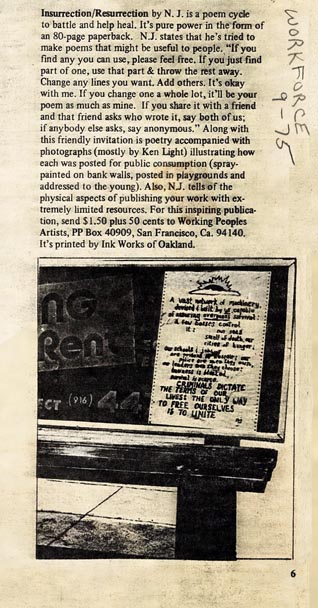 Insurrection/Resurrection by N. J. is a poem cycle
to battle and help heal. It's pure power in the form of
an 80-page paperback. N.J. states that he's tried to
make poems that might be useful to people. "If you
find any you can use, please feel free. If you just find
part of one, use that part & throw the rest away.
Change any lines you want. Add others. It's okay
with me. If you change one a whole lot, it'll be your
poem as much as mine. If you share it with a friend
and that friend asks who wrote it, say both of us;
if anybody else asks, say anonymous." Along with
this friendly invitation is poetry accompanied with
photographs (mostly by Ken Light) illustrating how
each was posted for public consumption (spray-
painted on bank walls, posted in playgrounds and
addressed to the young). Also, N.J. tells of the
physical aspects of publishing your work with ex-
tremely limited resources. For this inspiring publica-
tion, send $1.50 plus 50 cents to Working Peoples
Artists, PP Box 40909, San Francisco, Ca. 94140.
It's printed by Ink Works of Oakland.
WORKFORCE
9-75
NG
Rent
ECT (916) 44
A vast network of machinery,
designed & built by us, capable
of assuring everyones survival.
A few bosses control
it:
smell of death, our
cities of hunger.
our schools
business is
CRIMINALS DICTATE
THE TERMS OF OUR
LIVES! THE ONLY WAY
TO FREE OURSELVES
IS TO UNITE
nj
6